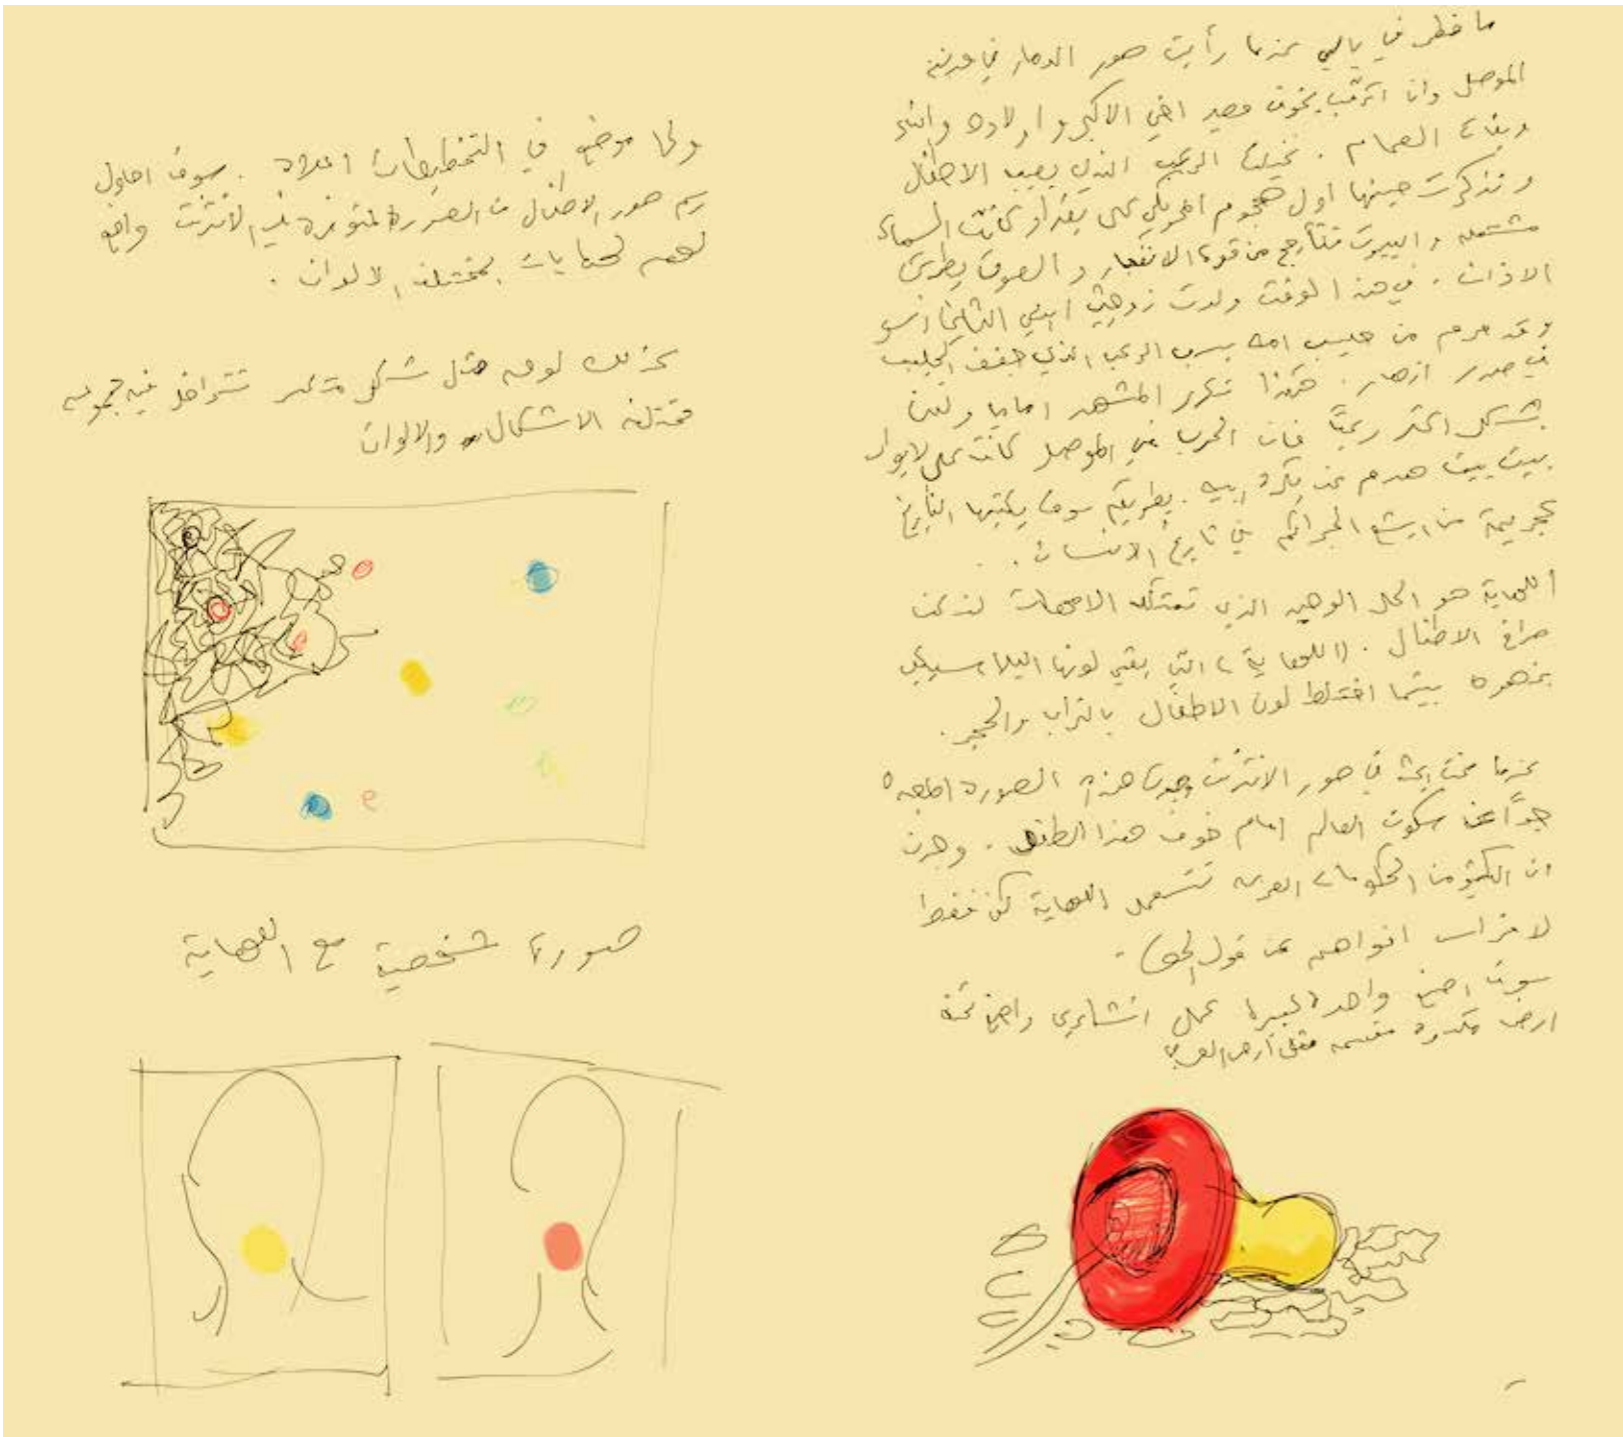 ما خطر في بالي عندما رأيت صور الدمار في مدينة
الموصل وانا اترقب بخوف مصير اخي الاكبر و اولاده وابنته
وبنات العمام . تخيلت الرعب الذي يصيب الاطفال
و تذكرت حينها اول هجوم امريكي على بغداد كانت السماء
مشتعله و البيوت تتأرجح من قوة الانفجار و الصوت يطرش
الاذان . في هذا الوقت ولدت زوجتي ابني الثاني
وقد حرم من حليب امه بسبب الرعب الذي جفف الحليب
في صدر ازهار . هكذا تكرر المشهد امامي ولكن
بشكل اكثر رعبًا فان الحرب في الموصل كانت على
بيت بيت هدم عن بكرة ابيه . بطريقة سوف يكتبها التاريخ
كجريمة من ابشع الجرائم في تاريخ الانسان . .
اللهاية هو الحل الوحيد الذي تمتلكه الامهات
صراخ الاطفال . (اللهاية) التي بقي لونها البلاستيكي
بينما اختلط لون الاطفال بالتراب والحجر .
عندما كنت ابحث في صور الانترنت وجدت هذه الصورة
جدًا عن سكوت العالم امام خوف هذا الطفل . وجدت
ان الكثير من الحكومات العربيه تستعمل اللهاية لكن فقط
لاخراس افواههم عن قول الحق .
سوف اضع واحدة كبيرة عمل انشائي واضح تحته
ارض مكسره مقسمه مثل ارض العرب
وكما موضح في التخطيطات اعلاه . سوف احاول
رسم صور الاطفال من الصور المتوفرة في الانترنت واضع
لهم لهايات بمختلف الالوان .
كذلك لوحه مثل شكل تتداخل فيه مجموعه
مختلفه الاشكال والالوان
صورة شخصية مع اللهاية